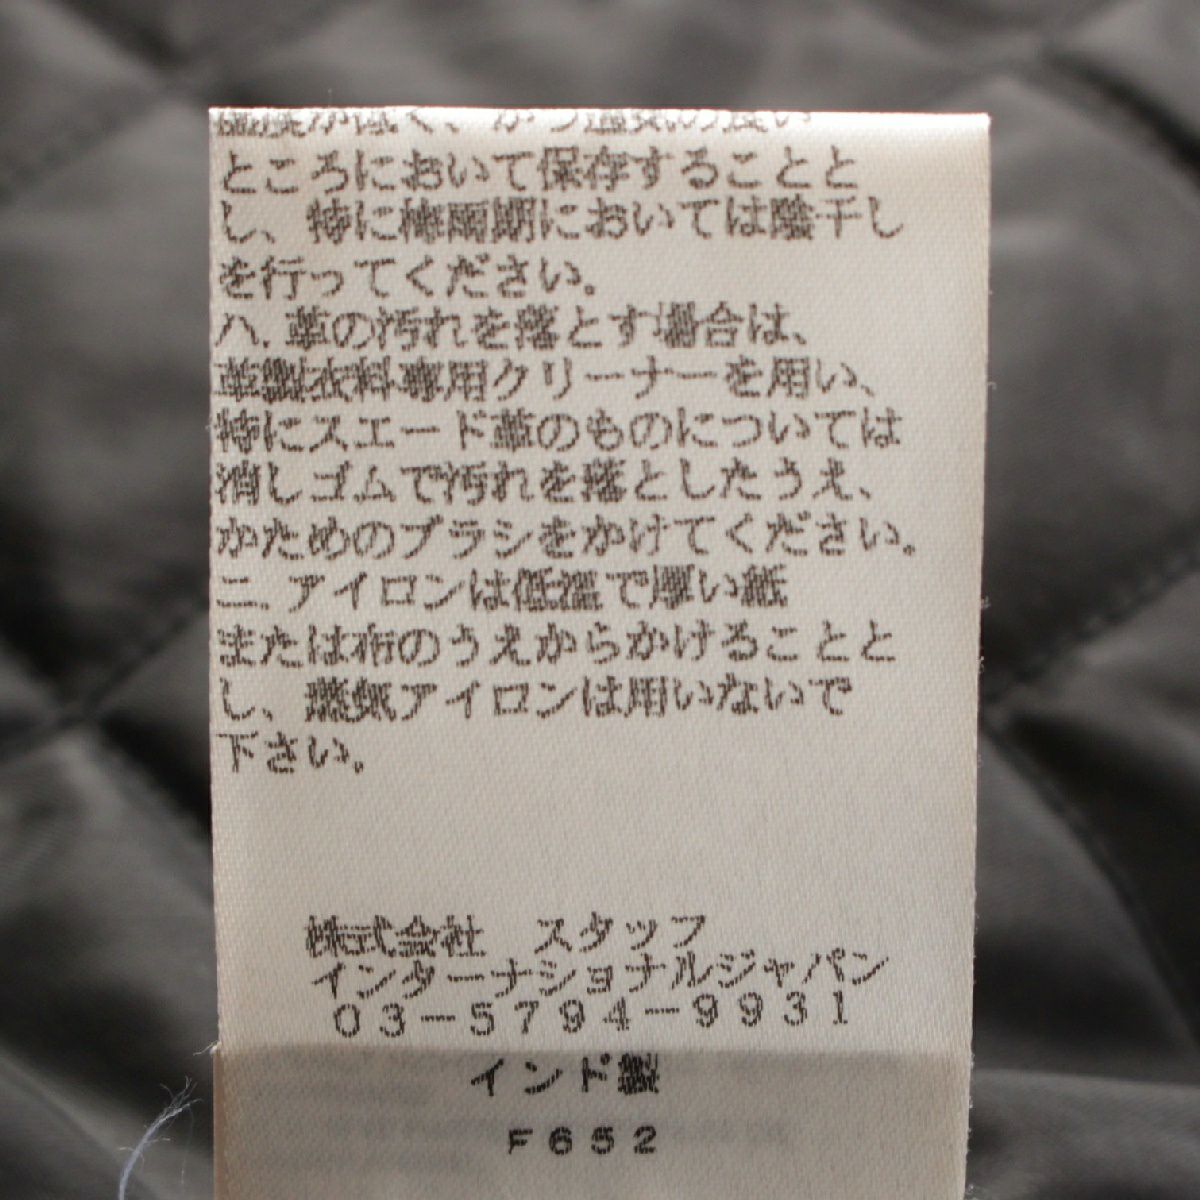 湿度が低く、かつ通気の良い
ところにおいて保存することと
し、特に梅雨期においては陰干し
を行ってください。
ハ.革の汚れを落とす場合は、
革製衣料専用クリーナーを用い、
特にスエード革のものについては
消しゴムで汚れを落としたうえ、
かためのブラシをかけてください。
ニ.アイロンは低温で厚い紙
または布のうえからかけることと
し、蒸気アイロンは用いないで
下さい。
株式会社 スタッフ
インターナショナルジャパン
03-5794-9931
インド製
F652